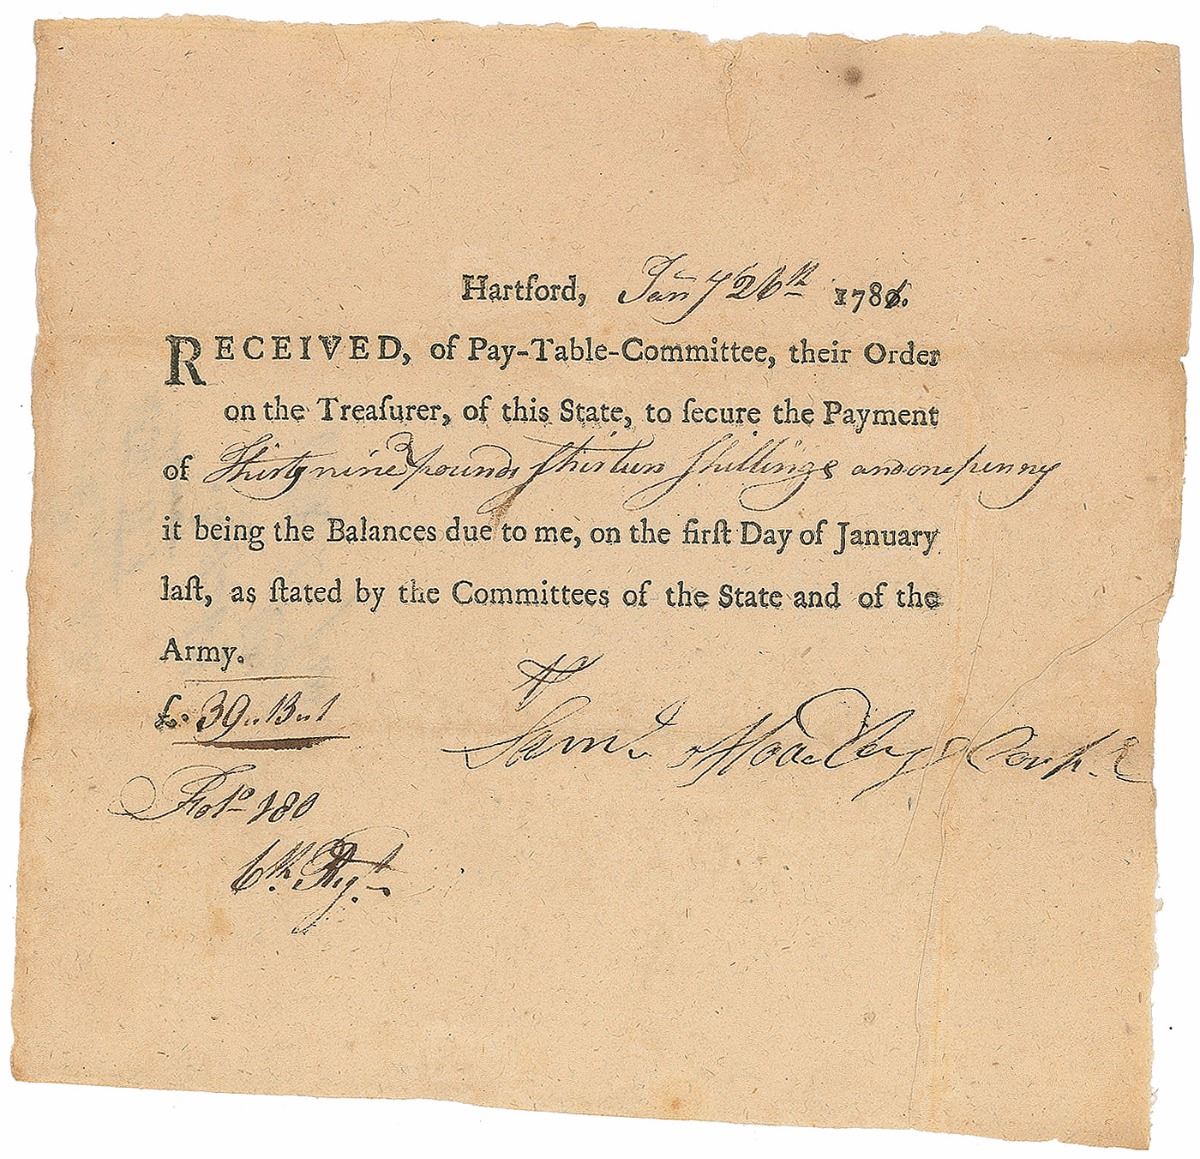 Hartford, Jany 26th 178
RECEIVED, of Pay-Table-Committee, their Order
on the Treaſurer, of this State, to ſecure the Payment
of Thirty nine pounds thirteen Shillings and one penny
it being the Balances due to me, on the firſt Day of January
laſt, as ſtated by the Committees of the State and of the
Army.
£. 39 " 13 " 1
Saml
Folo 180
6th Regt